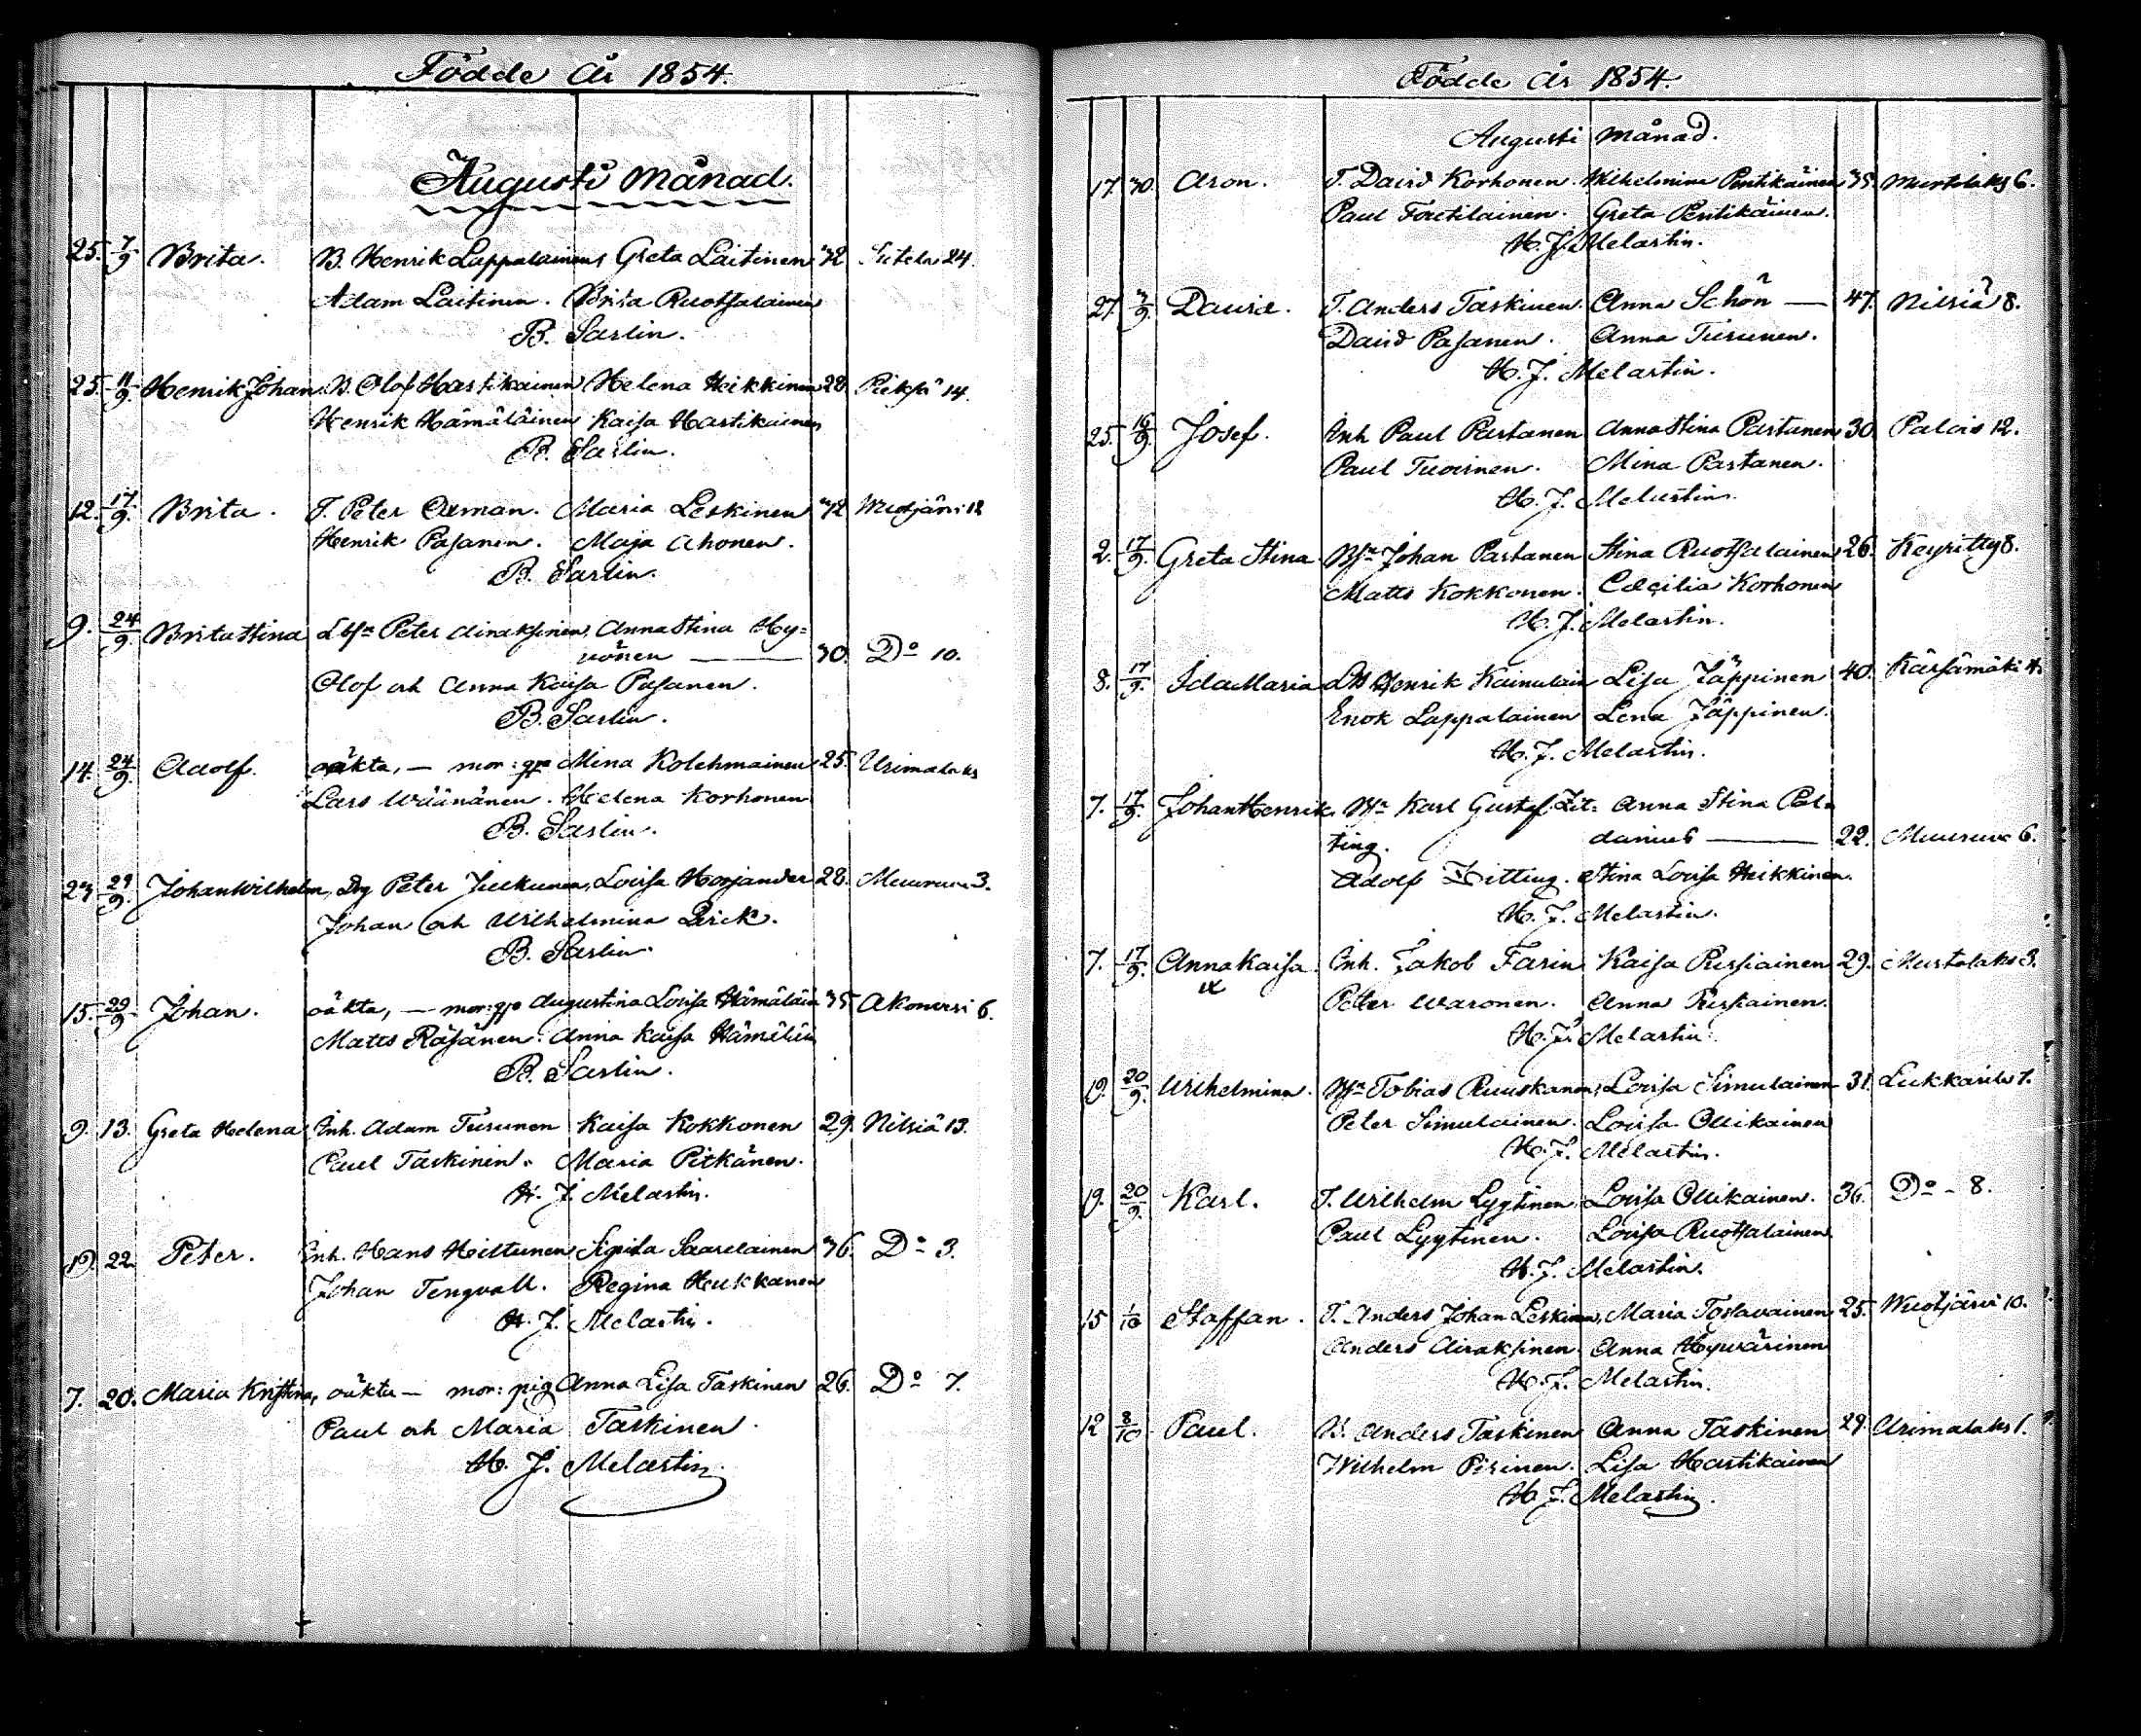 Födde År 1854.
Augusti Månad.
25. 7/9 Brita. B. Henrik Lappalainen, Greta Laitinen 32 Sutela 24.
Adam Laitinen. Brita Ruotsalainen
B. Sarlin.
25. 11/9 Henrik Johan. B. Olof Hartikainen Helena Heikkinen 28. Pieksä 14.
Henrik Hämäläinen Kaisa Hartikainen
B. Sarlin.
12. 17/9. Brita. T. Peter Axman. Maria Leskinen 32 Wuotjärvi 12
Henrik Pasanen. Maja Ahonen.
B. Sarlin.
9. 24/9. Brita Stina Peter Airaksinen, Anna Stina Hy=
vönen — 30. Do 10.
Olof och Anna Kaisa Pasanen.
B. Sarlin.
14. 24/9. Adolf. oäkta, — mor: Mina Kolehmainen 25. Urimalaks
Lars Wäänänen. Helena Korhonen
B. Sarlin.
23. 29/9. Johan Wilhelm, Drg Peter Juckunen, Lovisa Horjander 28. Muuruve 3.
Johan och Wilhelmina Brick.
B. Sarlin.
15. 29/9 Johan. oäkta, — mor: Augustina Lovisa Hämäläin 35 Akonvesi 6.
Matts Räsänen. Anna Kaisa Hämäläin
B. Sarlin.
9. 13. Greta Helena Inh. Adam Tirunen Kaisa Kokkonen 29. Nilsiä 13.
Paul Taskinen. Maria Pitkänen.
H. J. Melartin.
19. 22. Peter. Inh. Hans Hiltunen Sigrida Saarelainen 36. Do 3.
Johan Tengvall. Regina Heukkanen
H. J. Melartin.
7. 20. Maria Kristina, oäkta — mor: pig Anna Lisa Taskinen 26. Do 7.
Paul och Maria Taskinen.
H. J. Melartin.
Födde År 1854.
Augusti Månad.
17. 30. Aron. T. David Korhonen. Wilhelmina Pentikäinen 35. Murtolaks 6.
Paul Greta Pentikäinen.
H. J. Melartin.
27. 3/9. David. T. Anders Taskinen. Anna Schön — 47. Nilsiä 8.
David Pasanen. Anna Tirunen.
H. J. Melartin.
25. 16/9. Josef. Inh Paul Partanen Anna Stina Partanen 30 Palois 12.
Paul Tuovinen. Mina Partanen.
H. J. Melartin.
2. 17/9. Greta Stina. Bsn Johan Partanen Stina Ruotsalainen 26. Keyritty 8.
Matts Kokkonen. Cæcilia Korhonen
H. J. Melartin.
8. 17/9. Ida Maria Henrik Kainulain Lisa Jäppinen 40. Kärsämäki 4.
Enok Lappalainen Lena Jäppinen.
H. J. Melartin.
7. 17/9. Johan Henrik. Bsn Karl Gustaf Zit= Anna Stina Pal=
ting. danius — 22. Muuruve 6.
Adolf Zitting. Stina Lovisa Heikkinen.
H. J. Melartin.
7. 17/9. Anna Kaisa. Inh. Jakob Farin Kaisa Pursiainen 29. Murtolaks 3.
Peter Waronen. Anna Pursiainen.
H. J. Melartin.
19. 20/9. Wilhelmina. Bsn Tobias Ruuskanen, Lovisa Simulainen 31. Lukkarila 7.
Peter Simulainen. Lovisa Ollikainen
H. J. Melartin.
19. 20/9. Karl. T. Wilhelm Lyytinen, Lovisa Ollikainen. 36. Do - 8.
Paul Lyytinen. Lovisa Ruotsalainen
H. J. Melartin.
15 1/10 Staffan. T. Anders Johan Leskinen, Maria Tostavainen 25. Wuotjärvi 10.
Anders Airaksinen Anna Hyvärinen
H. J. Melartin.
12 8/10 Paul. B. Anders Taskinen Anna Taskinen 29. Urimalaks 1.
Wilhelm Pirinen. Lisa Hartikainen
H. J. Melartin.